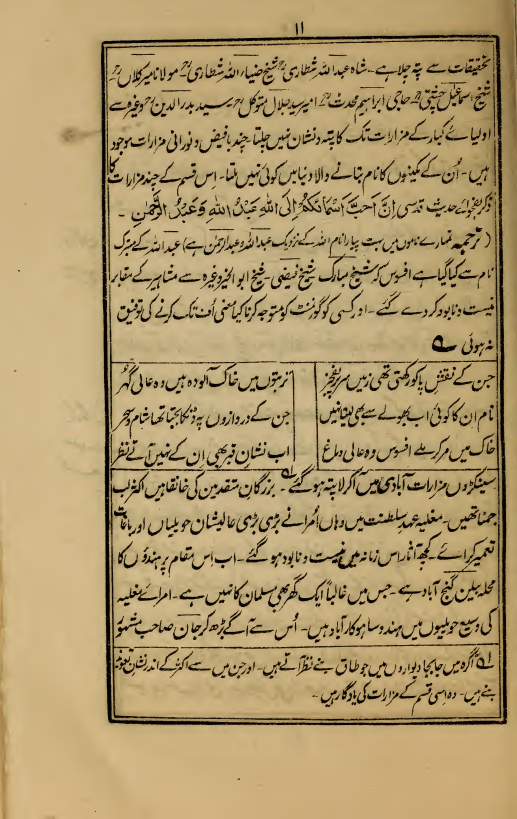 ۱۱
تحقیقات سے پتہ چلا ہے۔ شاہ عبداللہ شطاریؒ شیخ ضیاء اللہ شطاریؒ مولانا میر کلاںؒ
شیخ اسماعیل چشتیؒ حاجی ابراہیم محدثؒ امیر سید جلال متوکلؒ سید بدر الدینؒ وغیرہ سے
اولیائے کبار کے مزارات تک کا پتہ و نشان نہیں چلتا۔ چند بافیض و نورانی مزارات موجود
ہیں۔ اُن کے مکینوں کا نام بتانے والا دنیا میں کوئی نہیں ملتا۔ اس قسم کے چند مزارات کا
ذکر بفحوائے حدیث قدسی اِنَّ اَحَبَّ اَسْمَائِکُمْ اِلَی اللہِ عَبْدُ اللہِ وَعَبْدُ الرَّحْمٰنِ ۔
(ترجمہ تمہارے ناموں میں بہت پیارا نام اللہ کے نزدیک عبداللہ و عبدالرحمٰن ہے) عبداللہ کے متبرک
نام سے کیا گیا ہے افسوس کہ شیخ مبارک شیخ فیضی۔ شیخ ابو الخیر وغیرہ سے مشاہیر کے مقابر
نیست و نابود کر دے گئے۔ اور کسی کو گورنمنٹ کو متوجہ کرنا کیا معنی اُف تک کرنے کی توفیق
نہ ہوئی ؎
جن کے نقش پا کو رکھتی تھی زمیں سر پر بفخر تربتوں میں خاک آلودہ ہیں وہ عالی گہر
نام ان کا کوئی اب بھولے سے بھی لیتا نہیں جن کے دروازوں پہ ڈنکا بجتا تھا شام و سحر
خاک میں مر کر ملے افسوس وہ عالی دماغ اب نشانِ قبر بھی اِن کے نہیں آتے نظر
سینکڑوں مزارات آبادی میں آ کر لاپتہ ہو گئے ؎۱ ۔ بزرگان متقدمین کی خانقاہیں اکثر لب
جمنا تھیں۔ مغلیہ عہد سلطنت میں وہاں اُمرا نے بڑی بڑی عالیشان حویلیاں اور باغات
تعمیر کرائے۔ کچھ آثار اس زمانہ میں نیست و نابود ہو گئے۔ اب اس مقام پر ہندوؤں کا
محلہ بیلن گنج آباد ہے۔ جس میں غالباً ایک گھر بھی مسلمان کا نہیں ہے۔ امرائے مغلیہ
کی وسیع حویلیوں میں ہندو ساہوکار آباد ہیں۔ اُس سے آگے بڑھ کر جان صاحب مشہور
؎۱ آگرہ میں جابجا دیواروں میں جو طاق بنے نظر آتے ہیں۔ اور جن میں سے اکثر کے اندر نشانِ تعویذ
بنے ہیں۔ وہ اسی قسم کے مزارات کی یادگار ہیں ۔